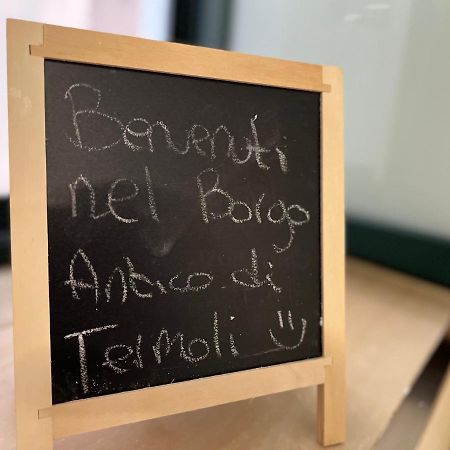 Benvenuti
nel Borgo
Antico di
Termoli :)